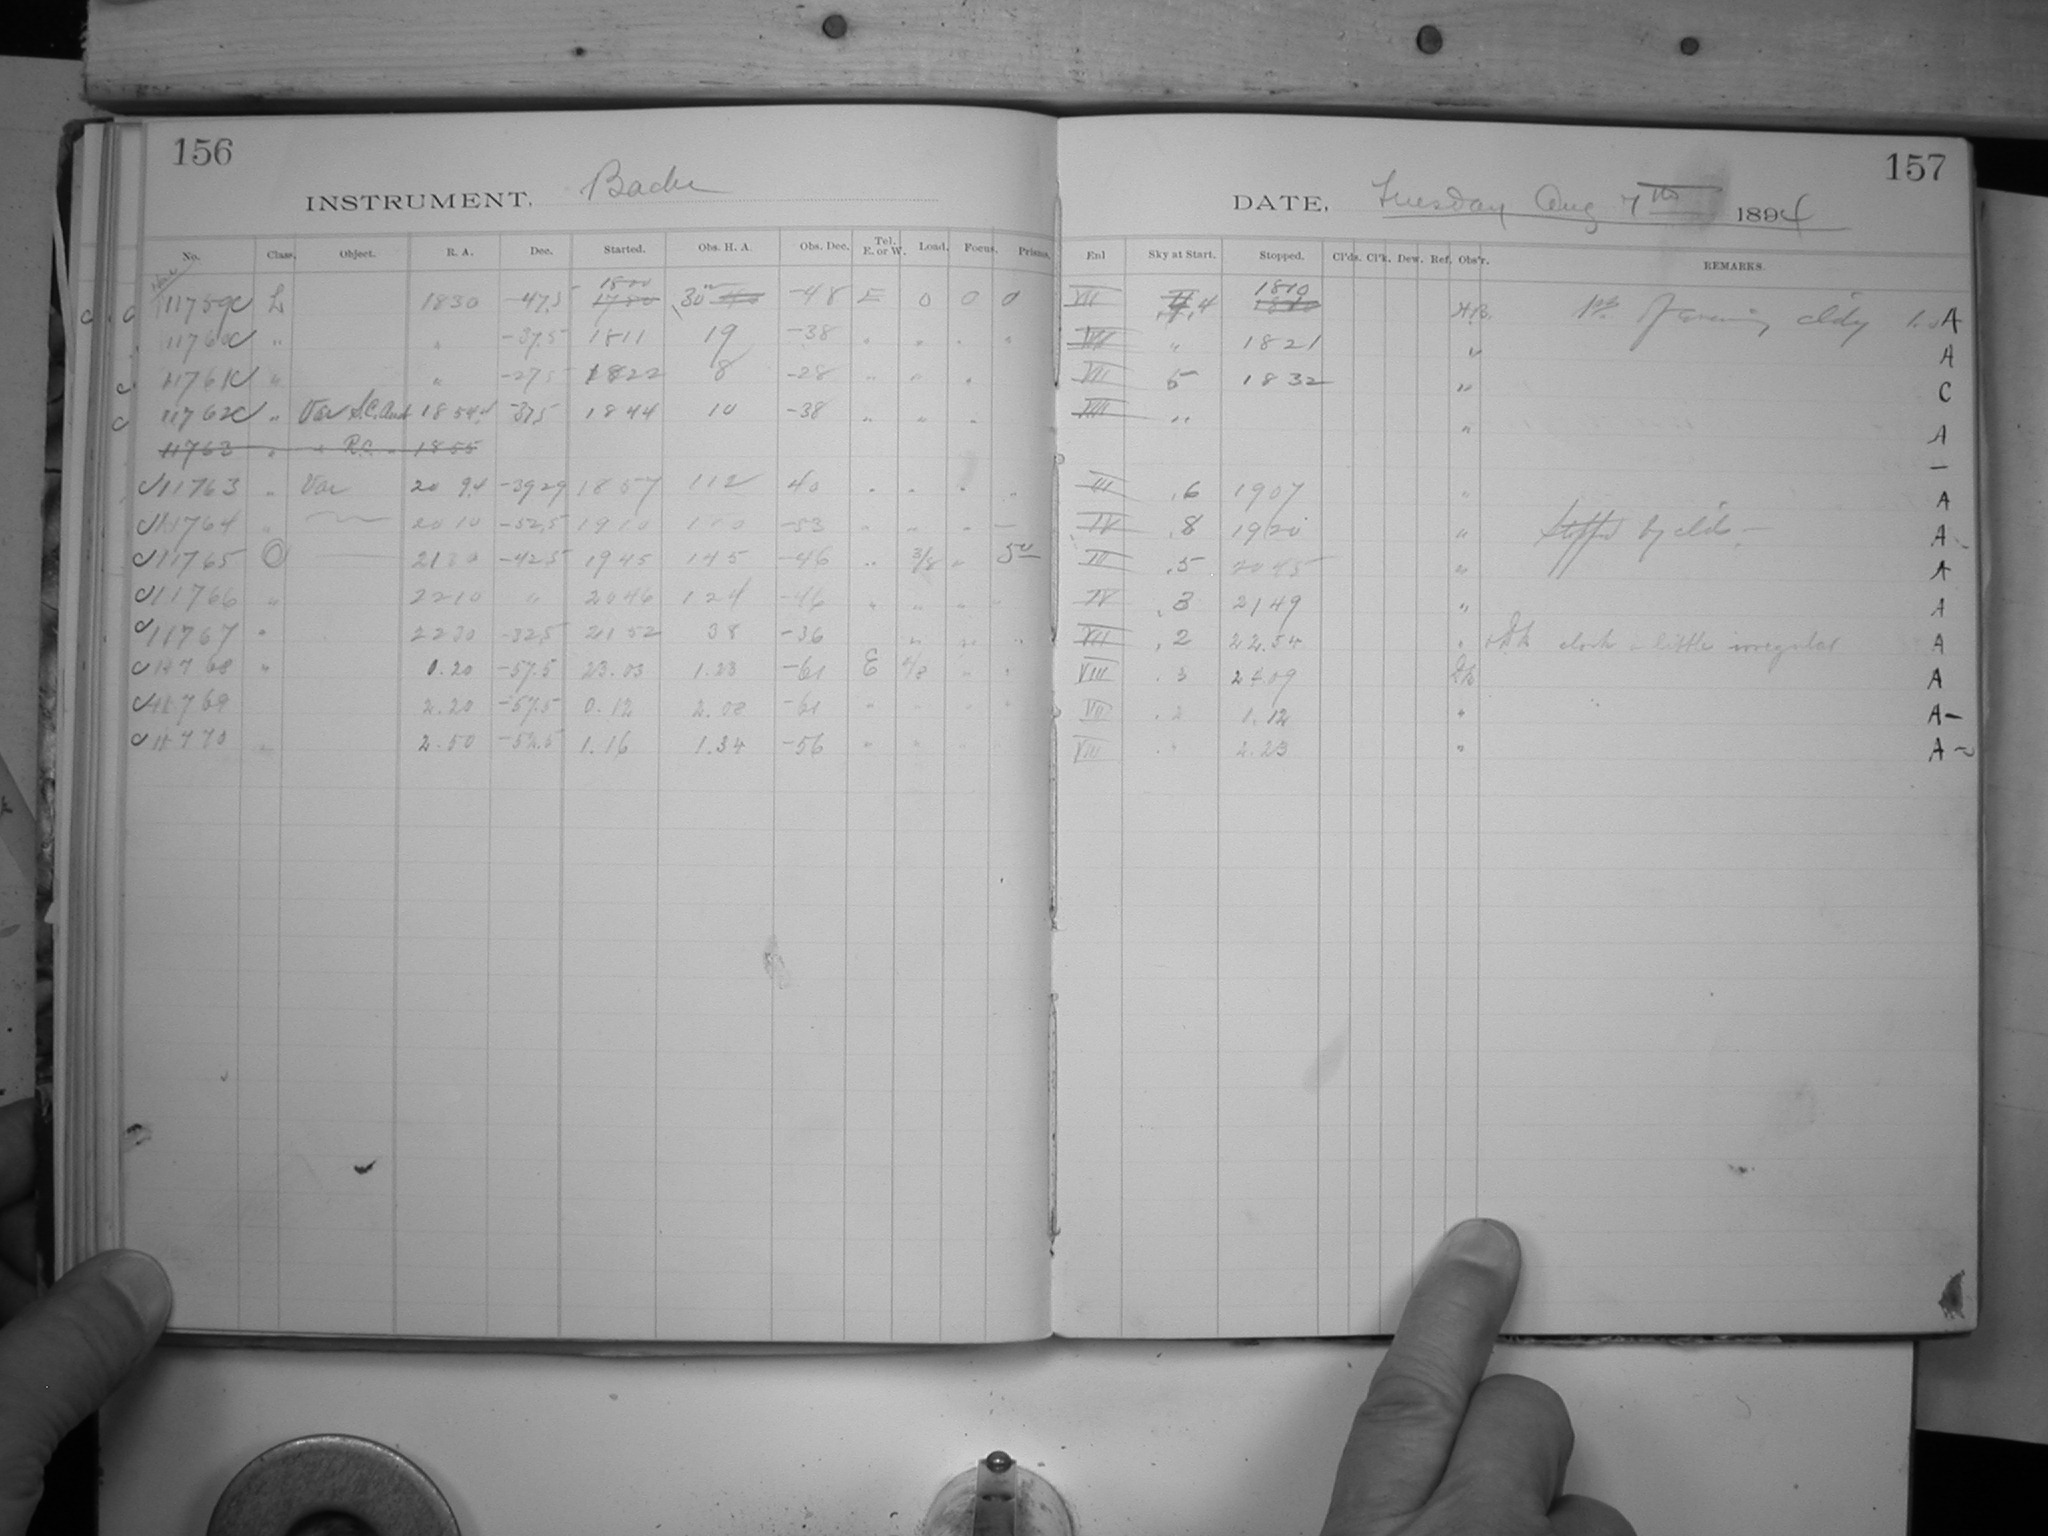 156
INSTRUMENT. Bache
No. Class. Object. R. A. Dec. Started. Obs. H. A. Obs. Dec. Tel. E. or W. Load. Focus. Prisms.
11759 L 1830 -47.5 1800 30m -48 E 0 0 0
11760 " " -37.5 1811 19 -38 " " " "
11761 " " -27.5 1822 8 -28 " " "
11762 " Var 1854 -37.5 1844 10 -38 " " "
11763 " " R.C. " 1855
11763 " Var 20 9.4 -3929 1857 112 40 " " " "
11764 " 2010 -52.5 1910 -53 " " "
11765 O -42.5 1945 145 -46 " 3/8 "
11766 " 2210 " 2046 124 -46 " " " "
11767 " 2230 -32.5 2152 38 -36 " " "
11768 " 0.20 -57.5 23.03 1.23 -61 E "
11769 2.20 -57.5 0.12 2.08 -61 " " " "
11770 " 2.50 -52.5 1.16 1.34 -56 " " "
157
DATE, Tuesday Aug 7th 1894
Enl Sky at Start. Stopped. Cl'ds. Cl'k. Dew. Ref. Obs'r. REMARKS.
VII .4 1810 H.B. of evening cldy A
VII " 1821 " A
VII 5 1832 " C
VIII " " A
—
III .6 1907 " A
IV .8 1920 " Stopped by clds — A
IV .5 2045 " A
IV .3 2149 " A
VII .2 22.54 " clock a little irregular A
VIII .3 24.09 A
VII .2 1.12 " A-
VIII " 2.23 " A